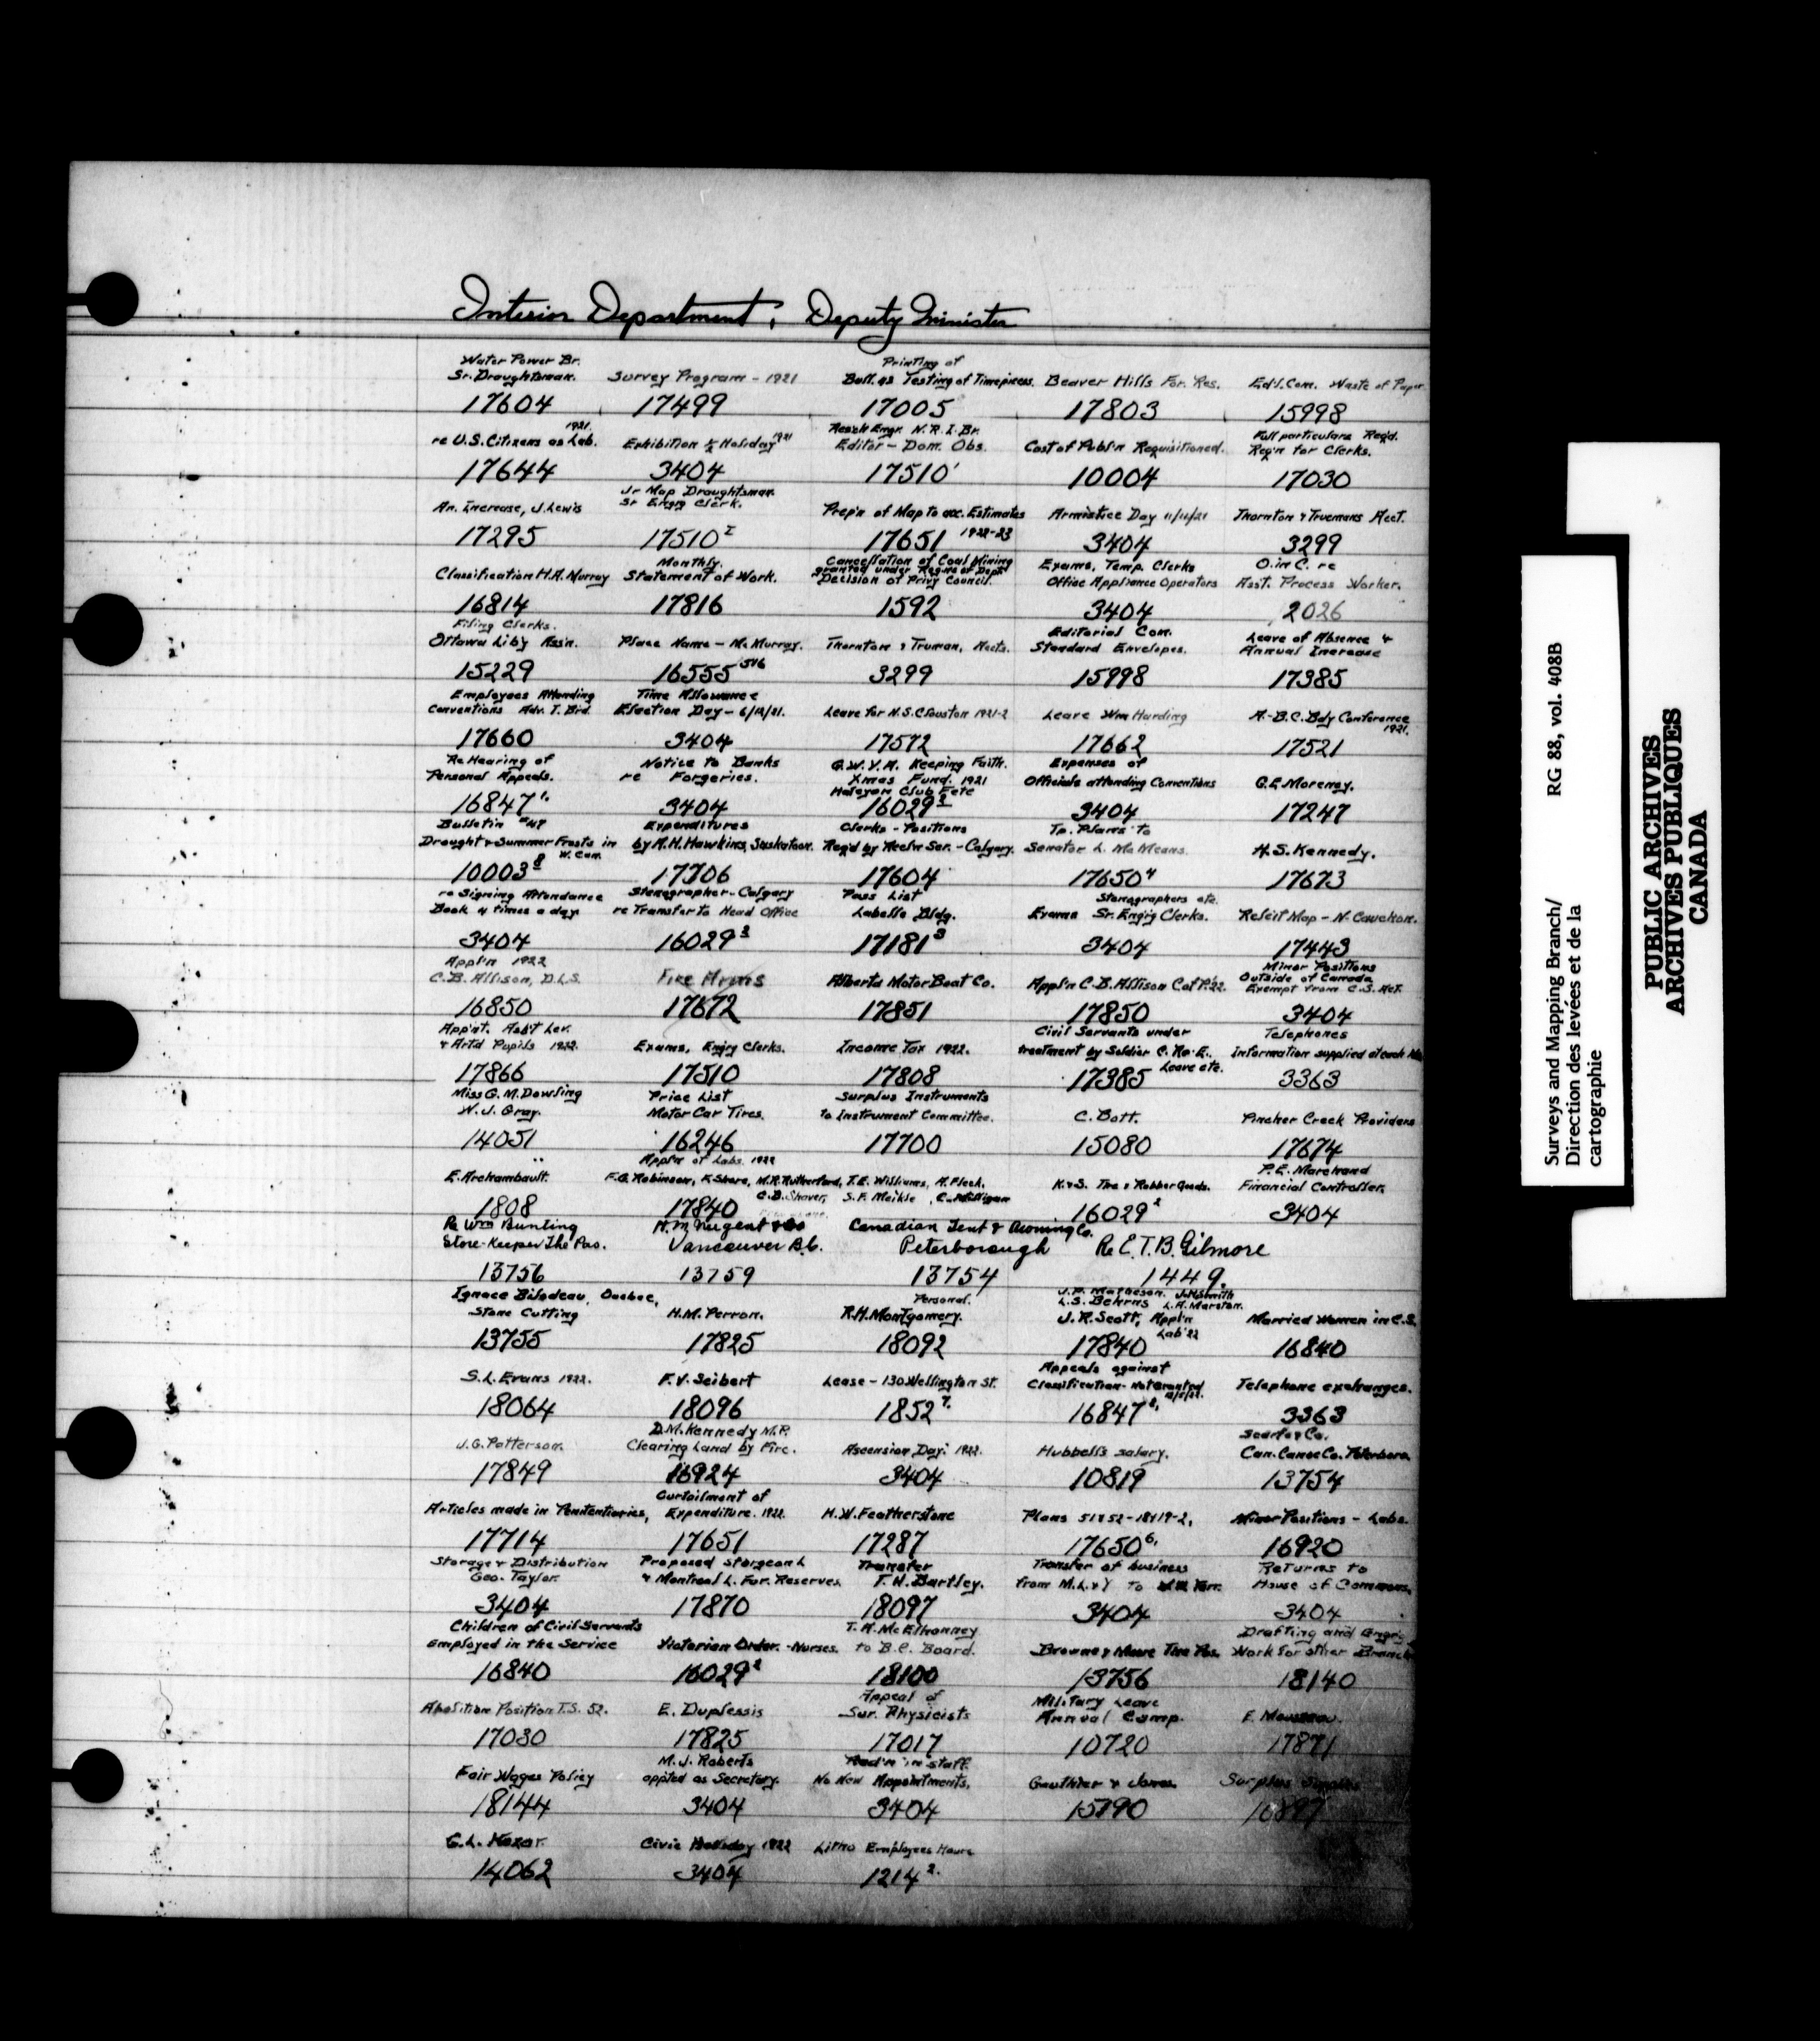 Interior Department, Deputy Minister
Water Power Br.
Sr. Draughtsman. Survey Program - 1921 Printing of Bull. as Testing of Timepieces. Beaver Hills For. Res. Ed'l. Com. Waste of Paper
17604 17499 17005 17803 15998
re U.S. Citizens as Lab. 1921. Exhibition ½ Holiday 1921 Resch Engr. N.R.I. Br. Editor - Dom. Obs. Cost of Publ'n Requisitioned. Full particulars Req'd. Req'n for Clerks.
17644 3404 17510' 10004 17030
An. Increase, J. Lewis Jr Map Draughtsman. Sr Engrg Clerk. Prep'n of Map to acc. Estimates 1922-23 Armistice Day 11/11/21 Thornton & Truemans Acct.
17295 17510² 17651 3404 3299
Classification H.A. Murray Monthly. Statement of Work. Cancellation of Coal Mining granted under Reg'ns of Dept Decision of Privy Council. Exams, Temp. Clerks Office Appliance Operators O. in C. re Asst. Process Worker.
16814 17816 1592 3404 2026
Filing Clerks. Ottawa Lib'y Ass'n. Place Name - McMurray. Thornton & Truman, Accts. Editorial Com. Standard Envelopes. Leave of Absence & Annual Increase
15229 16555 3299 15998 17385
Employees Attending Conventions Adv. T. Brd. Time Allowance Election Day - 6/12/21. Leave for N.S. Clouston 1921-2 Leave Wm Harding A.-B.C. Bdy Conference 1921.
17660 3404 17572 17662 17521
Re Hearing of Personal Appeals. Notice to Banks re Forgeries. G.W.V.A. Keeping Faith. Xmas Fund. 1921 Halcyon Club Fete Expenses of Officials attending Conventions G.E. Morency.
16847¹· 3404 16029² 3404 17247
Bulletin #47 Drought & Summer Frosts in W. Can. Expenditures by A.H. Hawkins, Saskatoon. Clerks - Positions Req'd by Recl'n Ser. - Calgary. Tp. Plans to Senator L. McMeans. H.S. Kennedy.
10003⁸ 17706 17604 17650⁴ 17673
re Signing Attendance Book 4 times a day. Stenographer - Calgary re Transfer to Head Office Pass List Labelle Bldg. Stenographers etc. Exams Sr. Eng'r'g Clerks. Relief Map - N.
3404 16029³ 17181³ 3404 17443
Appl'n 1922 C.B. Allison, D.L.S. Fire Arms Alberta Motor Boat Co. Appl'n C.B. Allison '22. Minor Positions Outside of Canada Exempt from C.S. Act.
16850 17672 17851 17850 3404
App'nt. Ass't Lev. & Art'd Pupils 1922. Exams, Engrg Clerks. Income Tax 1922. Civil Servants under treatment by Soldier C. Re-E. Leave etc. Telephones Information supplied at each
17866 17510 17808 17385 3363
Miss G.M. Dowling N.J. Gray. Price List Motor Car Tires. Surplus Instruments to Instrument Committee. C. Bott. Pincher Creek Providers
14051 16246 17700 15080 17674
E. Archambault. Appl'n of Labs. 1922 F.G. Robinson, F. Shore, M.R. Rutherford, T.E. Williams, A. Fleck, C.B. Shaver, S.F. Meikle, C. Milligan K. & S. Tire & Rubber Goods. P.E. Marchand Financial Controller.
1808 17840 16029² 3404
Re Wm Bunting Store-Keeper The Pas. H.M. Nugent & Co Vancouver B.C. Canadian Tent & Awning Co. Peterborough Re E.T.B. Gilmore
13756 13759 13754 1449.
Ignace Bilodeau, Quebec, Stone Cutting H.M. Perron. Personal. R.H. Montgomery. J.D. Matheson. J.H. Smith L.S. Behrns L.A. Marston. J.R. Scott, Appl'n Lab '22 Married Women in C.S.
13755 17825 18092 17840 16840
S.L. Evans 1922. F.V. Seibert Lease - 130 Wellington St. Appeals against Classification - Not Granted Telephone exchanges.
18064 18096 1852⁷· 16847²· 3363
J.G. Patterson. D.M. Kennedy M.P. Clearing Land by Fire. Ascension Day. 1922. Hubbell's salary. Scarfe & Co. Can. Canoe Co. Peterboro
17849 16924 3404 10819 13754
Articles made in Penitentiaries, Curtailment of Expenditure. 1922. H.W. Featherstone Plans 51&52-18&19-2, Minor Positions - Labs.
17714 17651 17287 17650⁶· 16920
Storage & Distribution Geo. Taylor. Proposed Sturgeon L & Montreal L. For. Reserves. Transfer T.H. Bartley. Transfer of business from M.L. & Y to Returns to House of Commons.
3404 17870 18097 3404 3404
Children of Civil Servants Employed in the Service Victorian Order - Nurses. T.A. McElhanney to B.C. Board. Browne & Moore The Pas. Drafting and Engr'g Work for other Branch
16840 16029² 18100 13756 18140
Abolition Position T.S. 52. E. Duplessis Appeal of Sur. Physicists Military Leave Annual Camp. F. Mousseau.
17030 17825 17017 10720 17871
Fair Wages Policy M.J. Roberts app'ted as Secretary. Red'n in staff. No New Appointments. Gauthier & Jones Surplus
18144 3404 3404 15790 16897
C.L. Civic Holiday 1922 Litho Employees Hours
14062 3404 1214²·
Surveys and Mapping Branch/
Direction des levées et de la
cartographie
RG 88, vol. 408B
PUBLIC ARCHIVES
ARCHIVES PUBLIQUES
CANADA